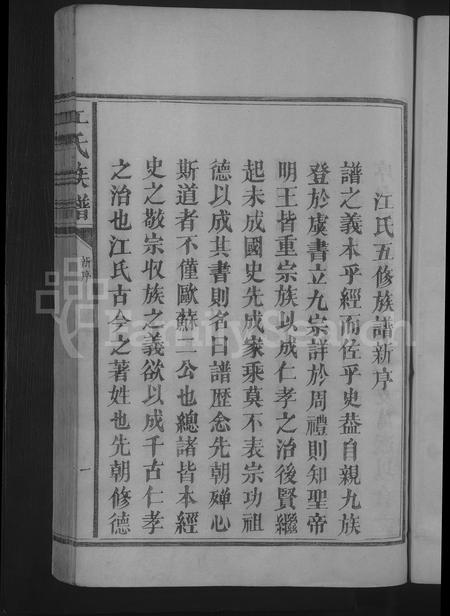 江氏五修族譜新序
譜之義本乎經而佐乎史葢自親九族
登於虞書立九宗詳於周禮則知聖帝
明王皆重宗族以成仁孝之治後賢繼
起未成國史先成家乘莫不表宗功祖
德以成其書則名曰譜歴念先朝殫心
斯道者不僅歐蘇二公也總諸皆本經
史之敬宗收族之義欲以成千古仁孝
之治也江氏古今之著姓也先朝修德
江氏族譜
新序
一
FamilySearch